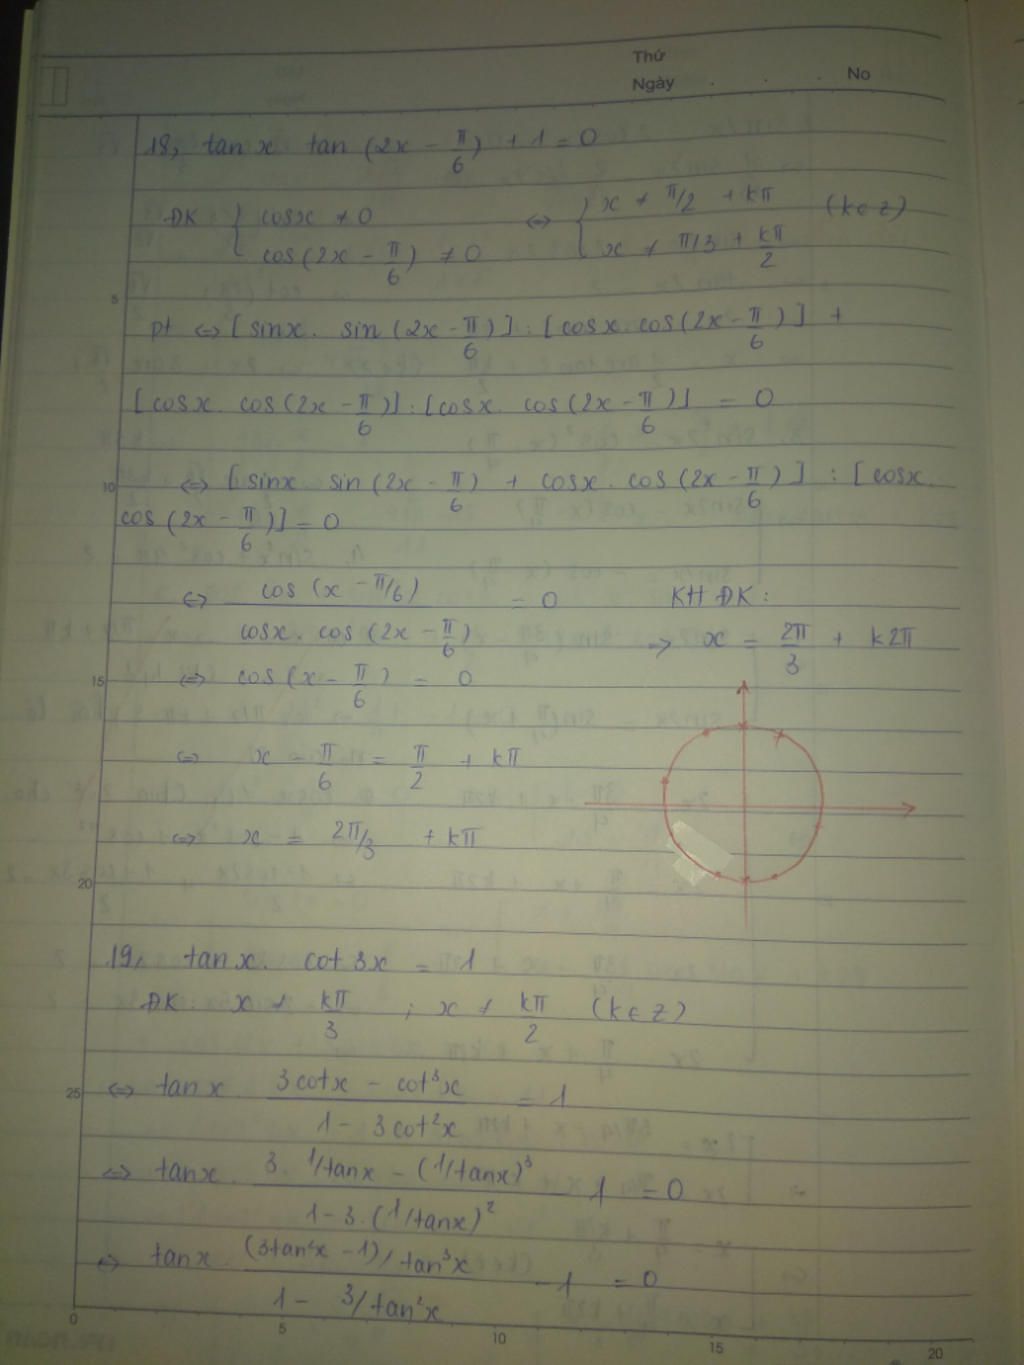 Thứ
Ngày . . . No
18, tan x tan (2x - π/6) + 1 = 0
ĐK { cosx ≠ 0 <=> { x ≠ π/2 + kπ (k∈Z)
cos(2x - π/6) ≠ 0 x ≠ π/3 + kπ/2
5
pt <=> [sinx. sin (2x - π/6)] : [cosx. cos(2x - π/6)] +
[cosx. cos(2x - π/6)] : [cosx. cos(2x - π/6)] = 0
10 <=> [sinx sin (2x - π/6) + cosx. cos (2x - π/6)] : [cosx.
cos (2x - π/6)] = 0
<=> cos (x - π/6) / cosx. cos (2x - π/6) = 0 KH ĐK :
-> x = 2π/3 + k2π
15 <=> cos (x - π/6) = 0
<=> x - π/6 = π/2 + kπ
<=> x = 2π/3 + kπ
20
19, tan x. cot 3x = 1
ĐK: x ≠ kπ/3 ; x ≠ kπ/2 (k∈Z)
25 <=> tan x. (3cotx - cot³x) / (1 - 3cot²x) = 1
<=> tanx. (3. 1/tanx - (1/tanx)³) / (1 - 3.(1/tanx)²) - 1 = 0
<=> tanx. ((3tan²x - 1) / tan³x) / (1 - 3/tan²x) - 1 = 0
0 5 10 15 20